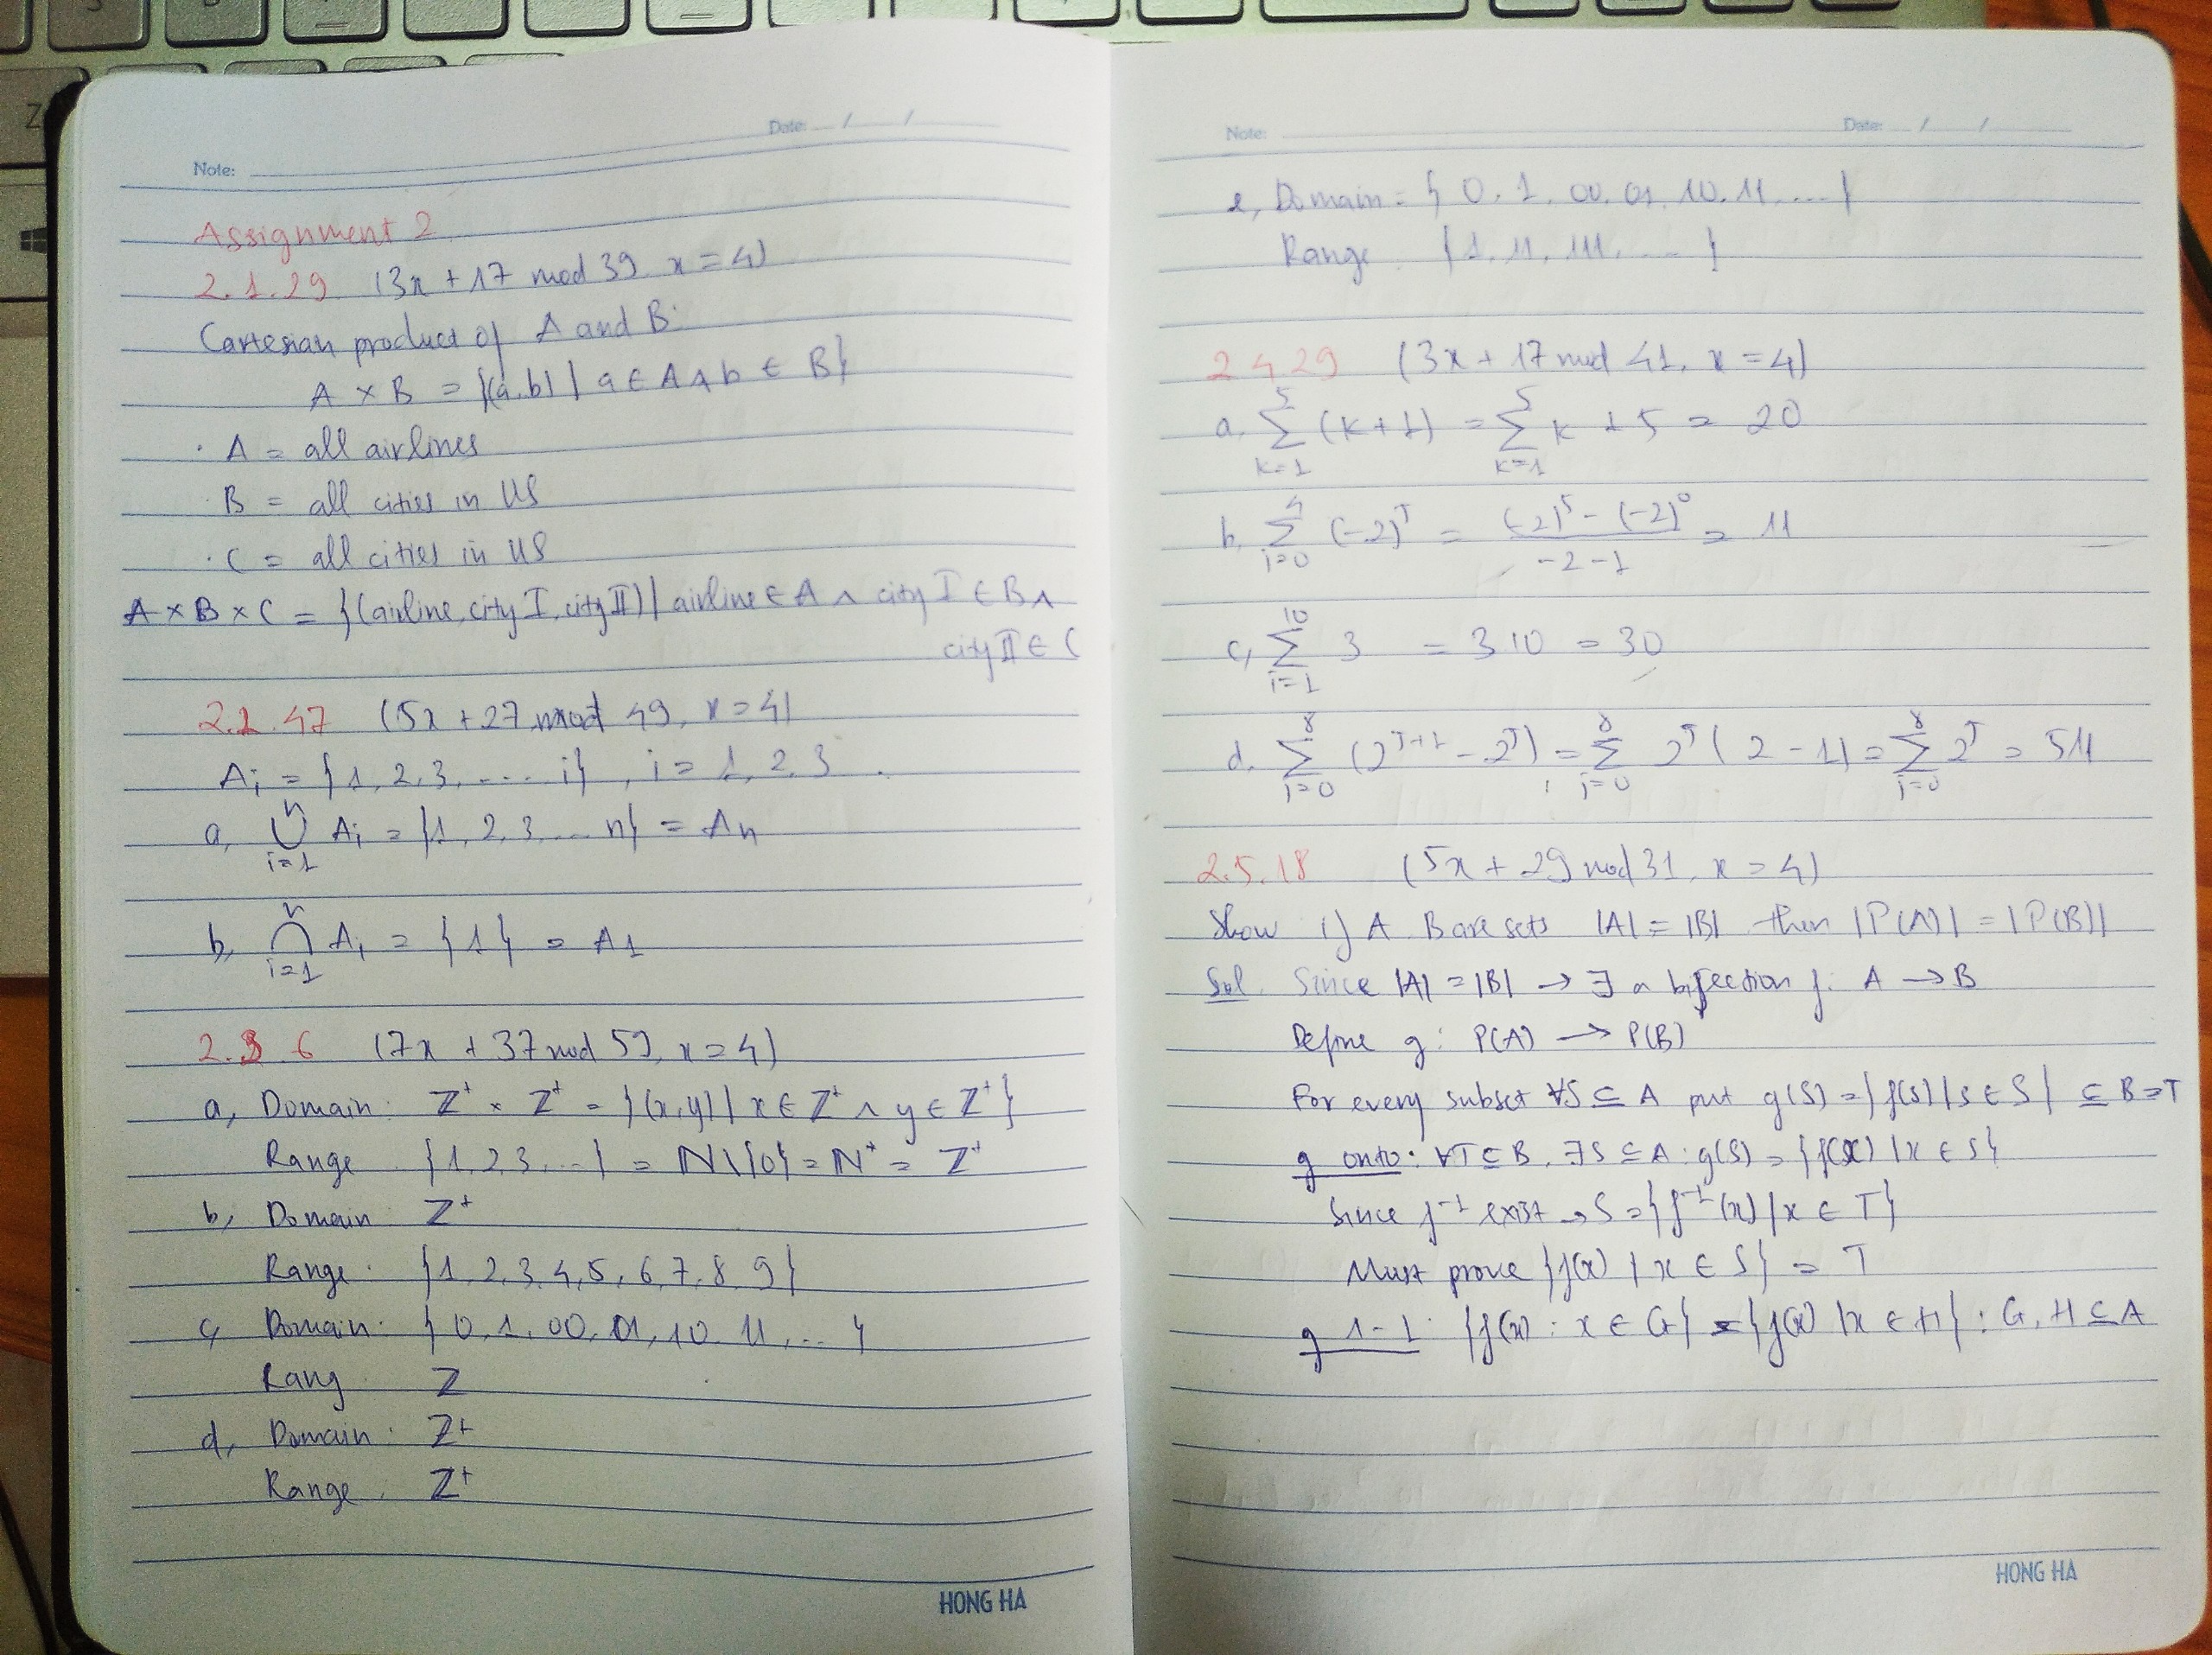 Date: / /
Note:
Assignment 2
2.1.29 (3x + 17 mod 39 x = 4)
Cartesian product of A and B:
A × B = {(a,b) | a ∈ A ∧ b ∈ B}
· A = all airlines
· B = all cities in US
· C = all cities in US
A × B × C = {(airline, city I, city II) | airline ∈ A ∧ city I ∈ B ∧
city II ∈ C
2.2.47 (5x + 27 mod 49, x = 4)
Ai = {1, 2, 3, .... i}, i = 1, 2, 3 .
a, ⋃_{i=1}^{n} Ai = {1, 2, 3, ... n} = An
b, ⋂_{i=1}^{n} Ai = {1} = A1
2.3.6 (7x + 37 mod 59, x = 4)
a, Domain: Z⁺ × Z⁺ = {(x,y) | x ∈ Z⁺ ∧ y ∈ Z⁺}
Range {1, 2, 3, ...} = N \ {0} = N⁺ = Z⁺
b, Domain Z⁺
Range: {1, 2, 3, 4, 5, 6, 7, 8, 9}
c, Domain: {0, 1, 00, 01, 10, 11, ... }
Rang Z
d, Domain: Z⁺
Range: Z⁺
HONG HA
Note: Date: / /
e, Domain = {0, 1, 00, 01, 10, 11, .... }
Range {1, 11, 111, ... }
2 4 29 (3x + 17 mod 41, x = 4)
a. ∑_{k=1}^{5} (k + 1) = ∑_{k=1}^{5} k + 5 = 20
b, ∑_{j=0}^{4} (-2)^j = ((-2)⁵ - (-2)⁰)/(-2 - 1) = 11
c, ∑_{i=1}^{10} 3 = 3 10 = 30
d. ∑_{j=0}^{8} (2^{j+1} - 2^j) = ∑_{j=0}^{8} 2^j (2 - 1) = ∑_{j=0}^{8} 2^j = 511
2.5.18 (5x + 29 mod 31, x = 4)
Show if A B are sets |A| = |B| then |P(A)| = |P(B)|
Sol. Since |A| = |B| → ∃ a bijection f: A → B
Define g: P(A) → P(B)
For every subset ∀S ⊆ A put g(S) = {f(s) | s ∈ S} ⊆ B = T
g onto: ∀T ⊆ B, ∃S ⊆ A: g(S) = {f(x) | x ∈ S}
Since f⁻¹ exist → S = {f⁻¹(x) | x ∈ T}
Must prove {f(x) | x ∈ S} = T
g 1-1: {f(x) : x ∈ G} = {f(x) | x ∈ H} : G, H ⊆ A
HONG HA